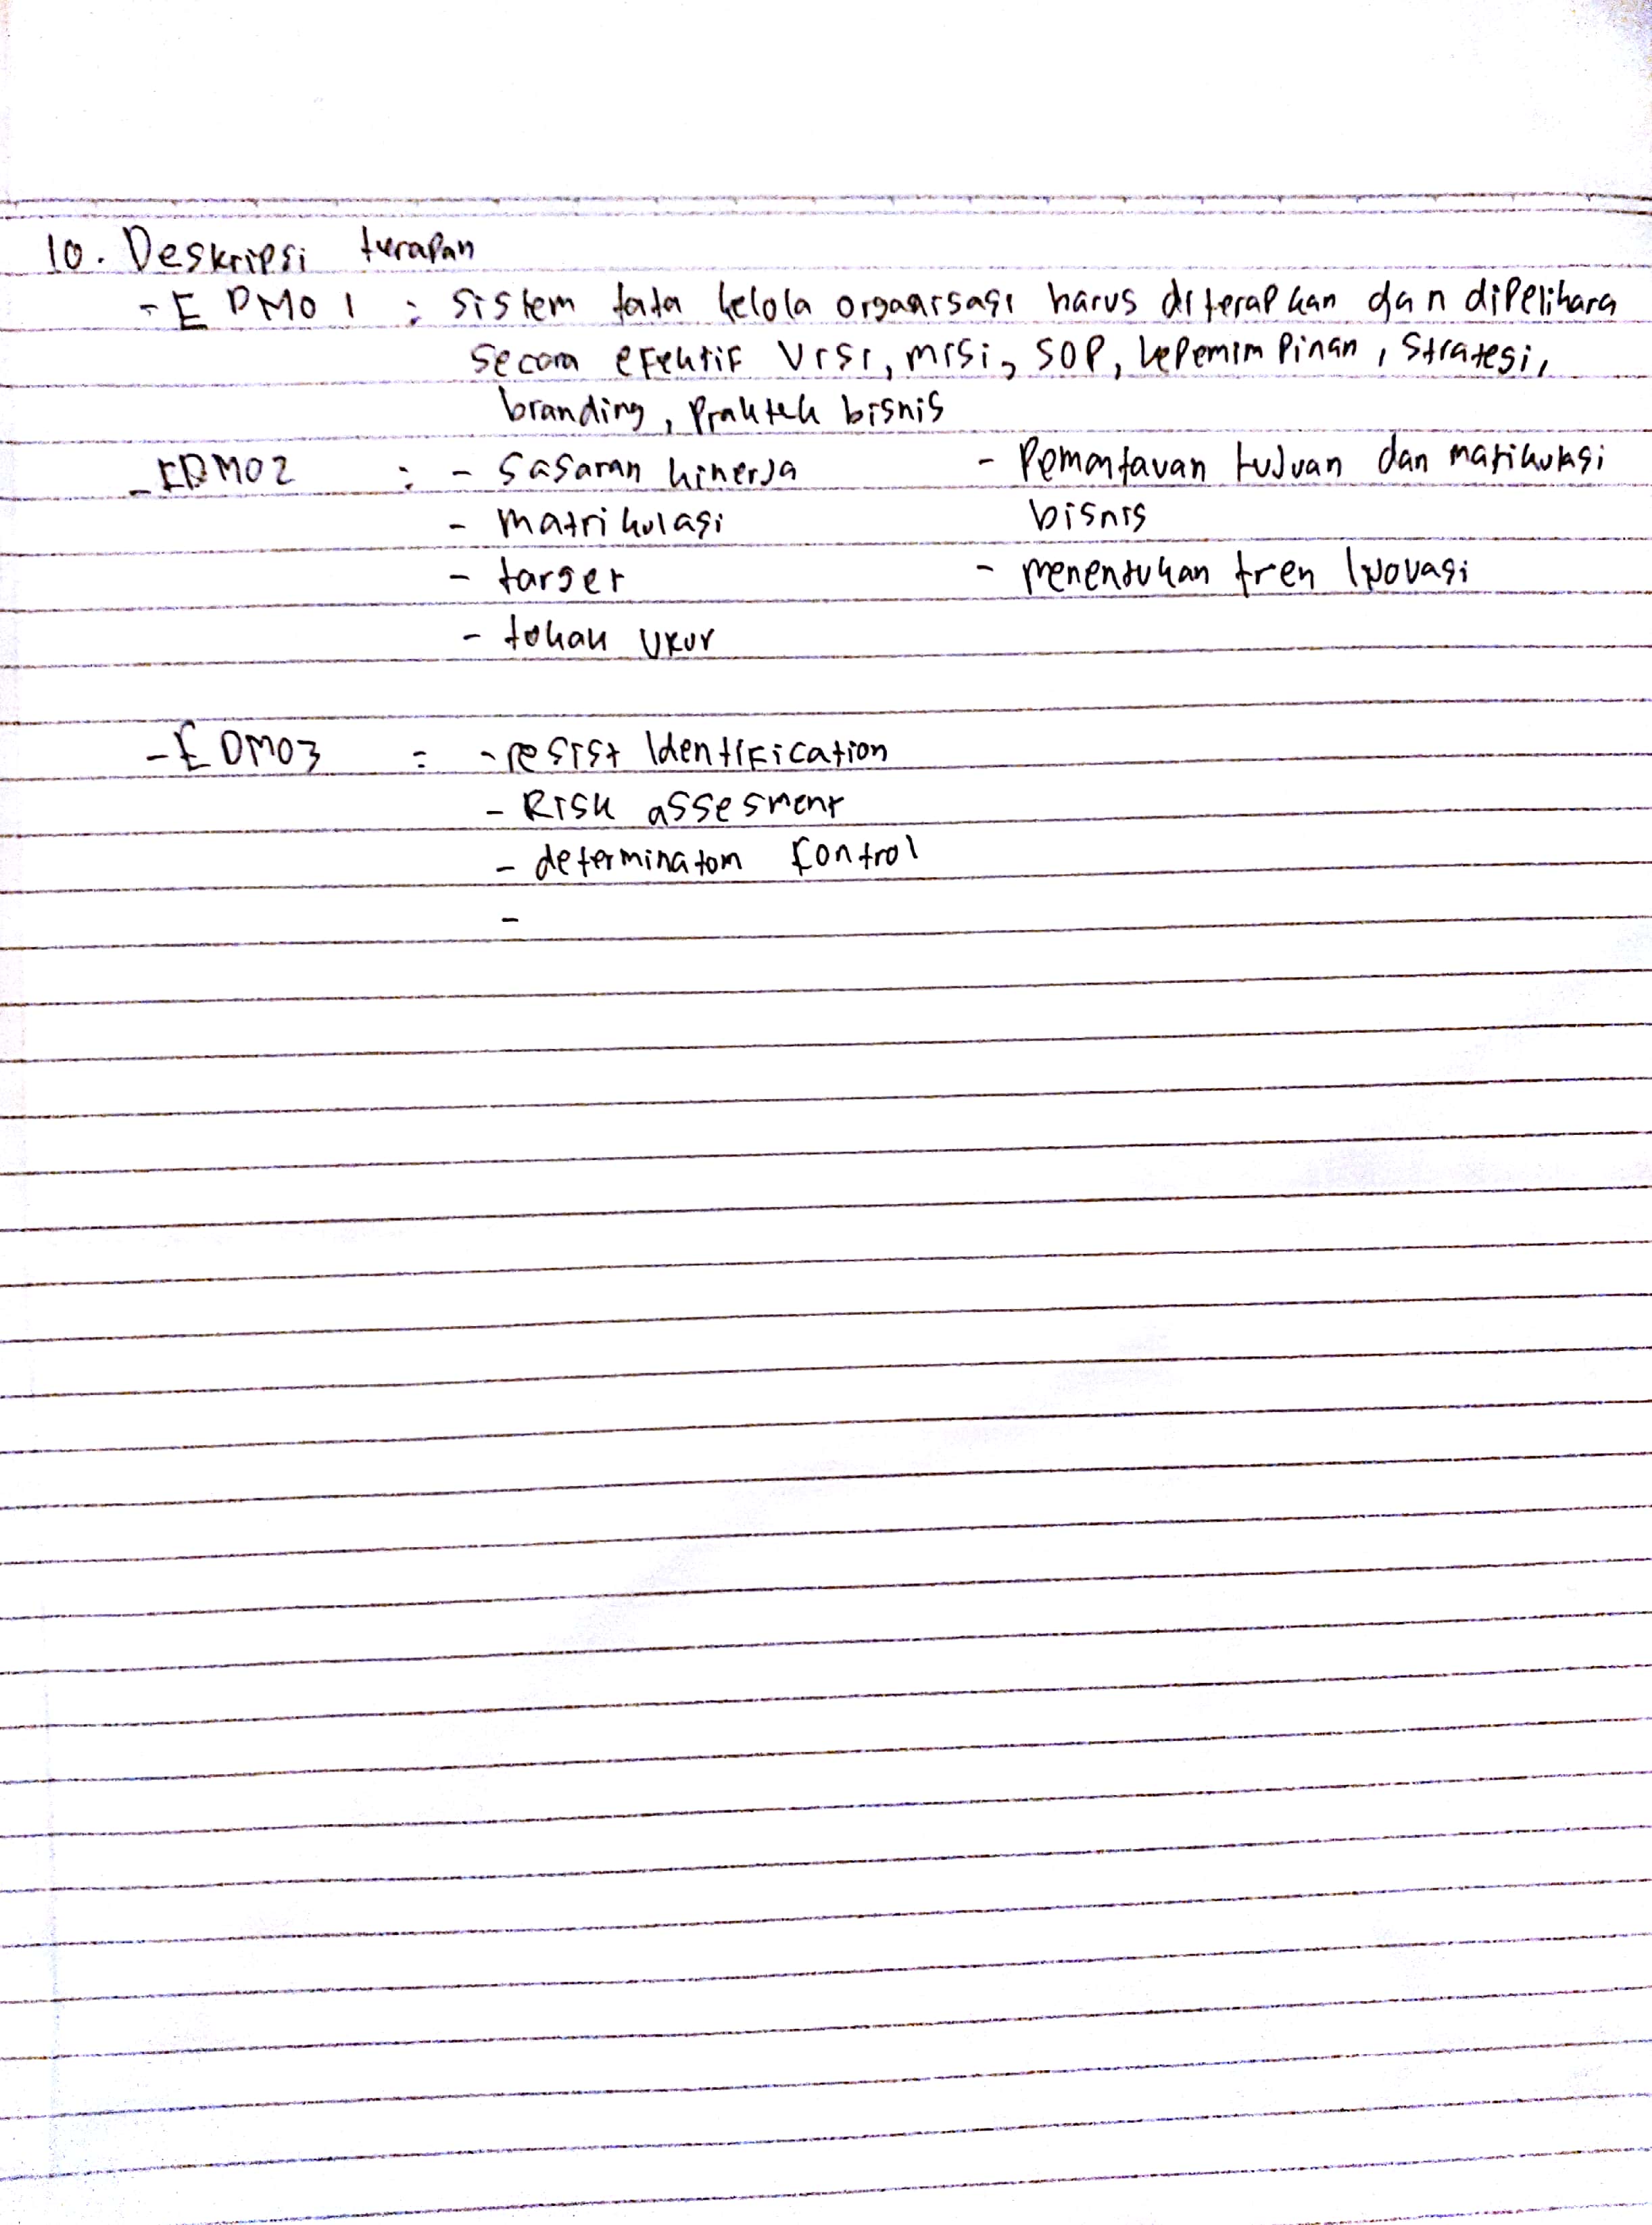 10. Deskripsi terapan
- EDM01 : Sistem tata kelola organisasi harus diterapkan dan dipelihara
secara efektif Visi, misi, SOP, kepemimpinan, Strategi,
branding, Praktek bisnis
- EDM02 : - Sasaran kinerja - Pemantauan tujuan dan matikulasi
- matrikulasi bisnis
- target - menentukan tren Inovasi
- tokak ukur
- EDM03 : - resist Identification
- Risk assesment
- determinatom control
-